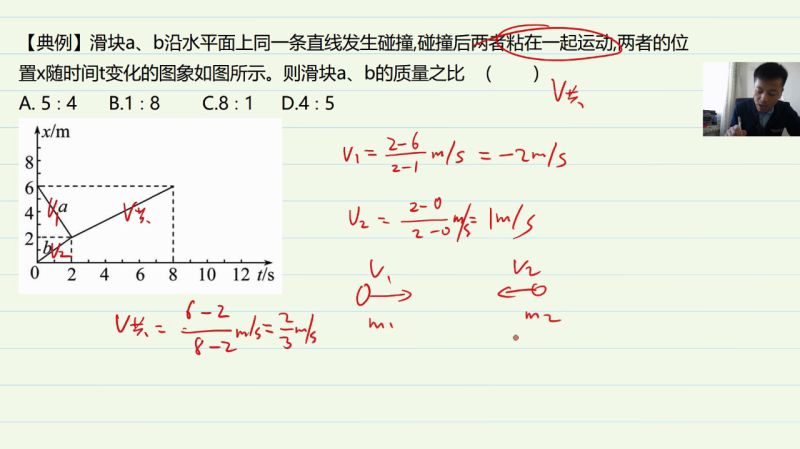 【典例】滑块a、b沿水平面上同一条直线发生碰撞,碰撞后两者粘在一起运动,两者的位
置x随时间t变化的图象如图所示。则滑块a、b的质量之比 ( )
A. 5 : 4 B.1 : 8 C.8 : 1 D.4 : 5
V共
x/m
8
6
4
2
0
a
b
V1
V2
V共
2 4 6 8 10 12 t/s
V1 = 2-6/2-1 m/s = -2m/s
V2 = 2-0/2-0 m/s = 1m/s
V1
V2
m1
m2
V共 = 6-2/8-2 m/s = 2/3 m/s